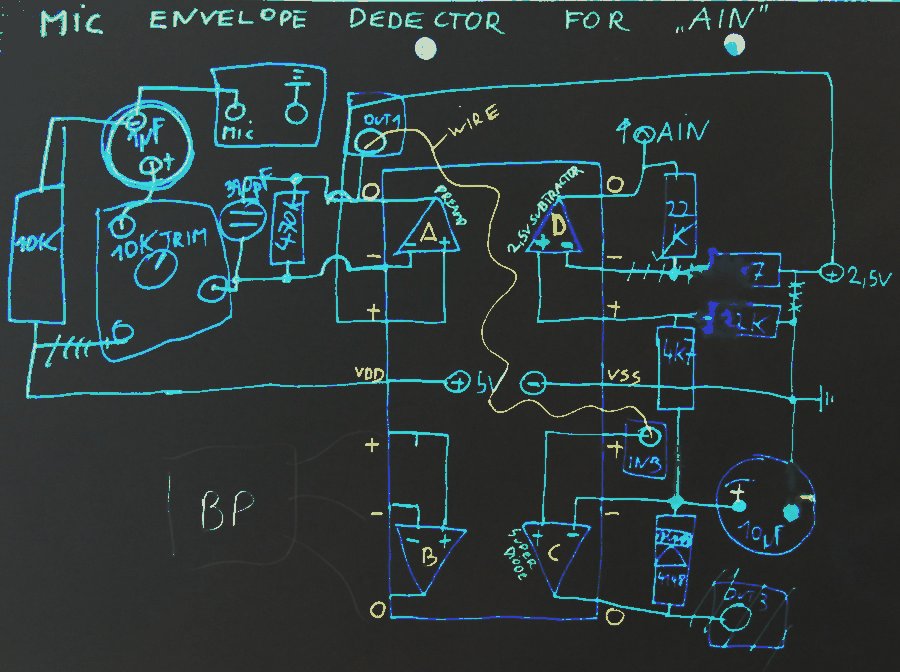 MIC ENVELOPE DEDECTOR FOR „AIN"
1µF
+
MIC
OUT1
WIRE
AIN
390pF
470K
10K
10K TRIM
O
PREAMP
A
- +
2,5V SUBTRACTOR
D
+ -
O
22
K
-
-
7
+ 2,5V
+
+
2K
4K7
VDD
+ 5V
-
VSS
+
+
IN3
BP
-
-
+
-
10µF
- +
B
SUPER
DIODE
+ -
C
4148
OUT3
O
O